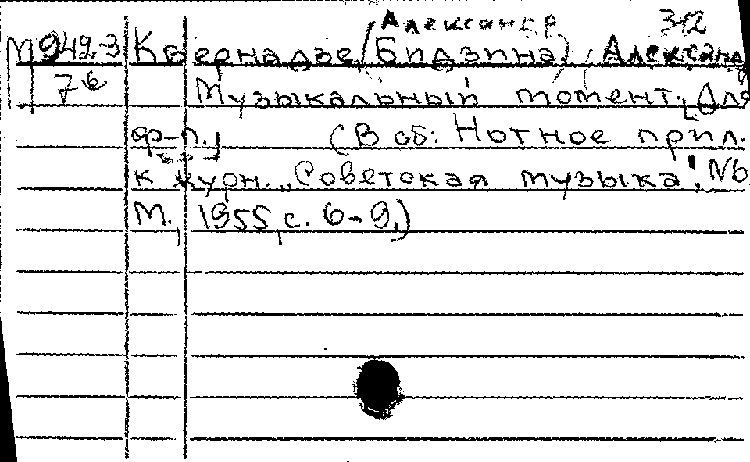 Александр 312
М 949.3 Квернадзе /Бидзина/, Александ
7б Музыкальный момент. [Для
ф-п.] (В об: Нотное прил.
к журн. „Советская музыка", №6
М., 1955, с. 6-9.)